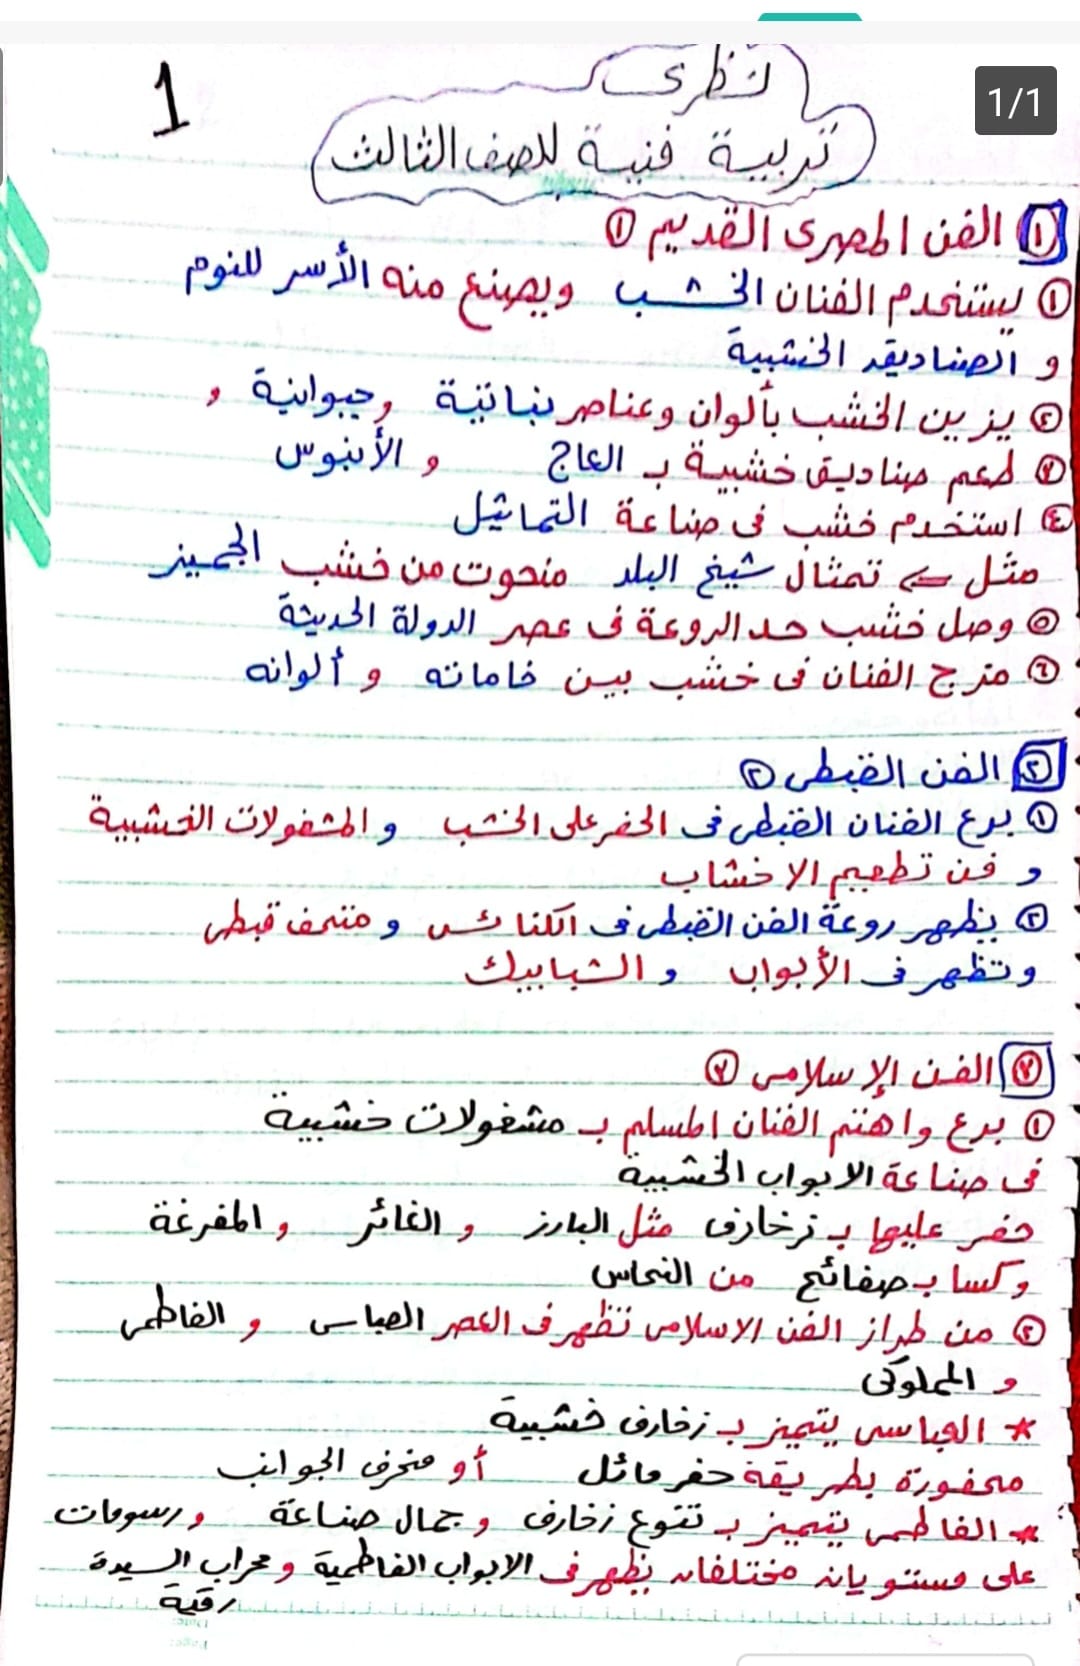 1/1
1
نظرى
تربية فنية للصف الثالث
١ الفن المصرى القديم ①
① يستخدم الفنان الخشب ويصنع منه الأسر للنوم
و الصناديق الخشبية
② يزين الخشب بألوان وعناصر نباتية وحيوانية و
③ طعم صناديق خشبية بـ العاج و الأبنوس
④ استخدم خشب فى صناعة التماثيل
مثل ⇐ تمثال شيخ البلد منحوت من خشب الجميز
⑤ وصل خشب حد الروعة فى عصر الدولة الحديثة
⑥ مزج الفنان فى خشب بين خاماته و ألوانه
② الفن القبطى ②
① برع الفنان القبطى فى الحفر على الخشب و المشغولات الخشبية
و فن تطعيم الاخشاب
② يظهر روعة الفن القبطى فى الكنائس و متحف قبطى
وتظهر فى الأبواب و الشبابيك
③ الفن الإسلامى ③
① برع واهتم الفنان المسلم بـ مشغولات خشبية
فى صناعة الابواب الخشبية
حفر عليها بـ زخارف مثل البارز و الغائر و المفرغة
وكسا بـ صفائح من النحاس
② من طراز الفن الاسلامى تظهر فى العصر العباسى و الفاطمى
و المملوكى
* العباسى يتميز بـ زخارف خشبية
محفورة بطريقة حفر مائل أو منحرف الجوانب
* الفاطمى يتميز بـ تنوع زخارف و جمال صناعة ورسومات
على مستويان مختلفان يظهر فى الابواب الفاطمية و محراب السيدة
رقية